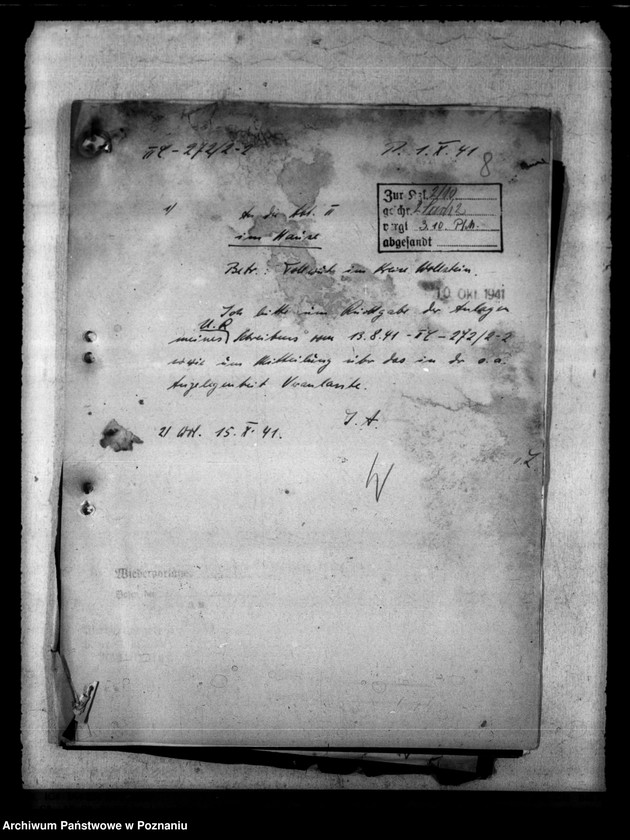 II C - 272/2-2
P. 1. X. 41
8
Zur Ost. 2/10
geschr.
vergl. 3.10. Pl.M.
abgesandt
1) An die Abt. II
im Hause
Betr.: Tollwut im Kreise Wollstein.
10. Okt. 1941
Ich bitte um Rückgabe der Anlagen
U.R
meines Schreibens vom 13.8.41 - II C - 272/2-2
sowie um Mitteilung über das in der o.a.
Angelegenheit Veranlasste.
I. A.
2) Wvl. 15. X. 41.
Wiedervorlage
Archiwum Państwowe w Poznaniu